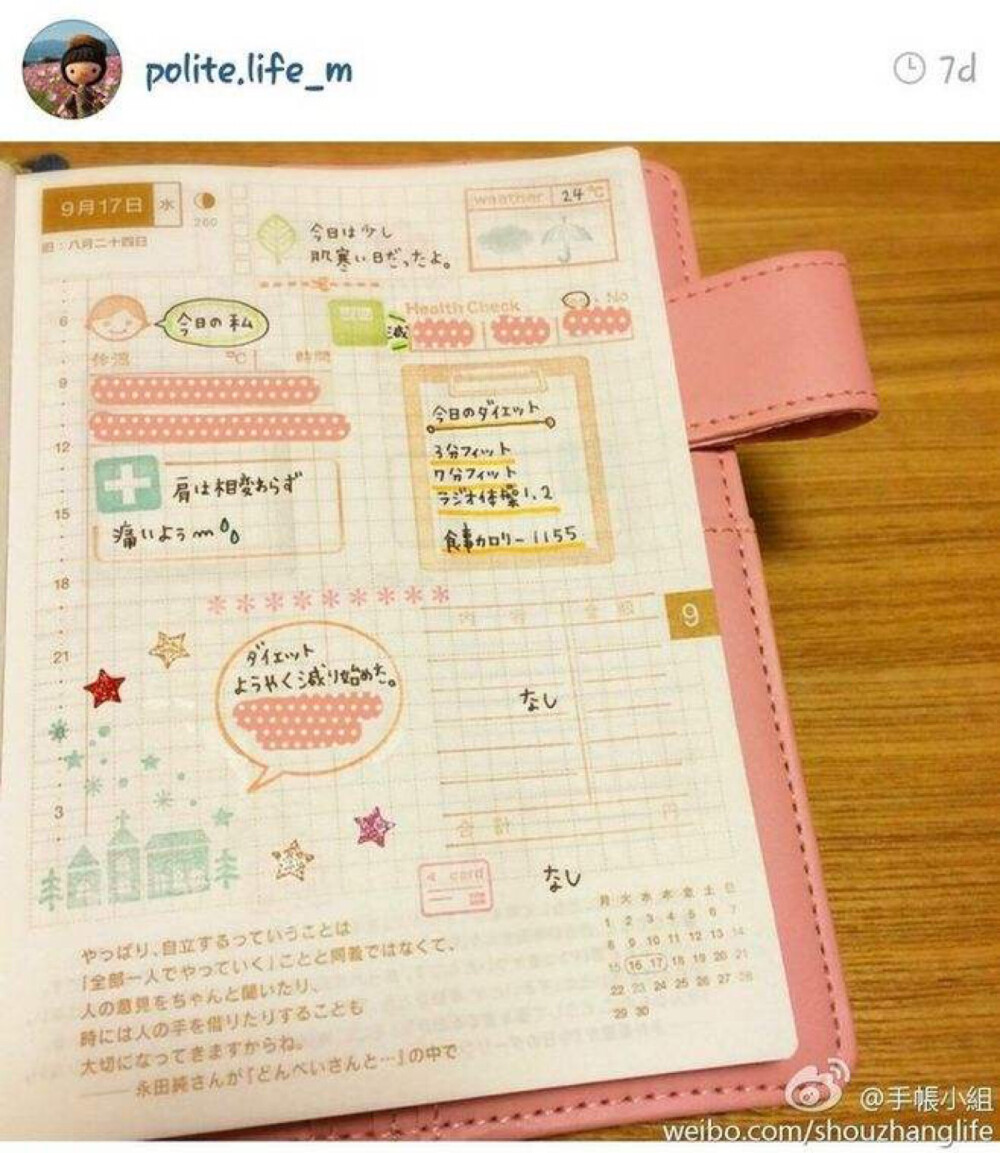 polite.life_m
7d
9月17日 水
260
旧：八月二十四日
weather 24 ℃
今日は少し
肌寒い日だったよ。
6
今日の私
減
Health Check
No
体温 ℃ 時間
9
12
15
18
21
3
今日のダイエット
3分フィット
7分フィット
ラジオ体操1.2
食事カロリー1155
肩は相変わらず
痛いようm
内容 金額
9
ダイエット
ようやく減り始めた。
なし
合計 円
card
なし
月 火 水 木 金 土 日
1 2 3 4 5 6 7
8 9 10 11 12 13 14
15 16 17 18 19 20 21
22 23 24 25 26 27 28
29 30
やっぱり、自立するっていうことは
「全部一人でやっていく」ことと同義ではなくて、
人の意見をちゃんと聞いたり、
時には人の手を借りたりすることも
大切になってきますからね。
——永田純さんが『どんべいさんと…』の中で
@手帳小組
weibo.com/shouzhanglife